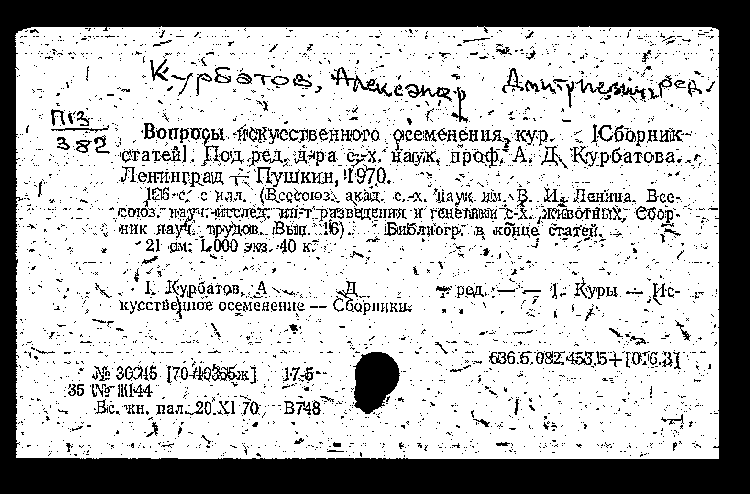 Курбатов, Александр Дмитриевич, ред.
П13
382
Вопросы искусственного осеменения кур. [Сборник
статей]. Под ред. д-ра с.-х. наук, проф. А. Д. Курбатова.
Ленинград — Пушкин, 1970.
126 с. с илл. (Всесоюз. акад. с.-х. наук им. В. И. Ленина. Все-
союз. науч.-исслед. ин-т разведения и генетики с.-х. животных. Сбор-
ник науч. трудов. Вып. 16). Библиогр. в конце статей.
21 см. 1.000 экз. 40 к.
I. Курбатов, А Д ред. — — 1. Куры — Ис-
кусственное осеменение — Сборники.
636.5.082.453.5+[016.3]
№ [70-40365ж] 17-5
35 №
Вс. кн. пал. 20 XI 70 В748